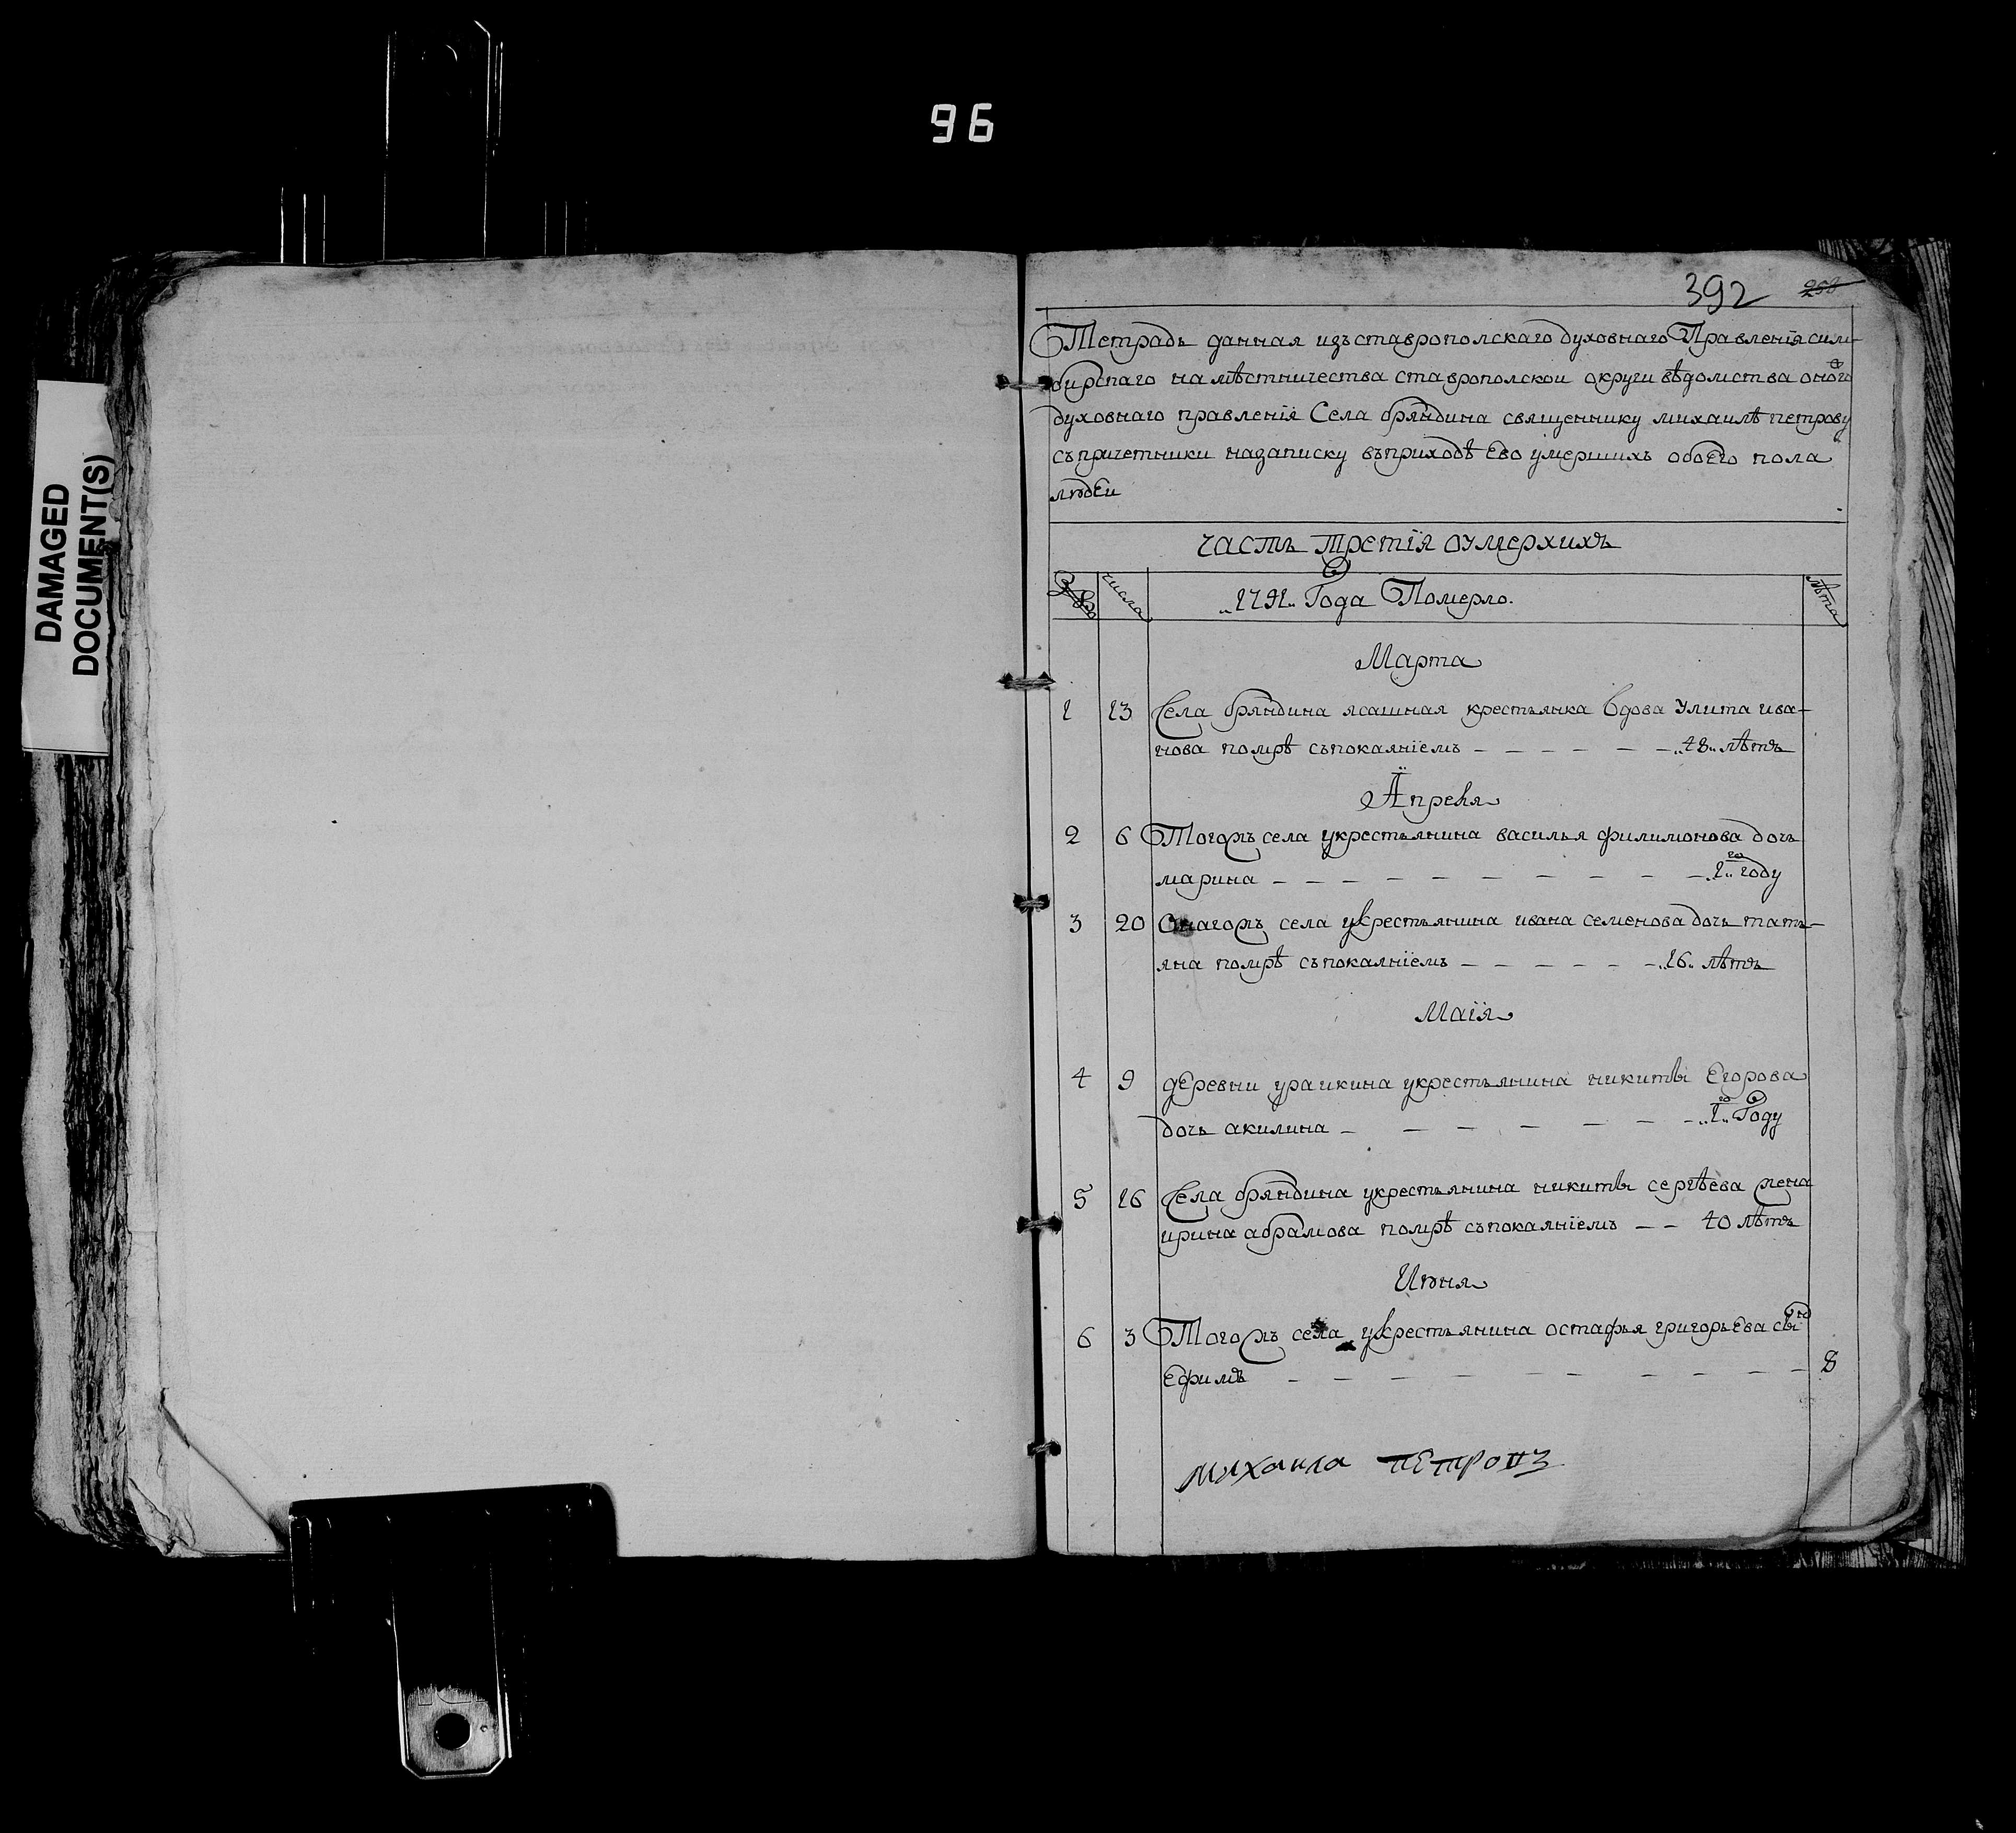 96
DAMAGED
DOCUMENT(S)
392 258
Тетрадь данная изъставрополскаго духовнаго Правленїя сим-
бирскаго намѣстничества ставрополскои округи вѣдомства оного
духовнаго правленїя Села бряндина священнику михаилѣ петрову
съпричетники назаписку въприходѣ Ево умершихъ обоЕго пола
людЕи
часть третїя оумерхихъ
числа
„1791„ Года Померло.
лѣта
Марта
1 13 Села бряндина ясашная крестьянка вдова Улита ива-
нова помрѣ съпокаянїемъ — — — — — — „48„ лѣтъ
Апреля
2 6 Тогожъ села укрестьянина василья филимонова дочь
марина — — — — — — — — — — „1„ го году
3 20 Онагожъ села укрестьянина ивана семенова дочь тать-
яна помрѣ съпокаянїемъ — — — — — — „16„ лѣтъ
Маїя
4 9 дЕревни ураикина укрестьянина никиты Егорова
дочь акилина — — — — — — — „1„ го Году
5 16 Села бряндина укрестьянина никиты сергѣева жена
ирина абрамова помрѣ съпокаянїемъ — — 40 лѣтъ
Июня
6 3 Тогожъ села укрестьянина остафья григорьЕва сынъ
Ефимъ — — — — — — — — — — 8
михаила пЕтровъ